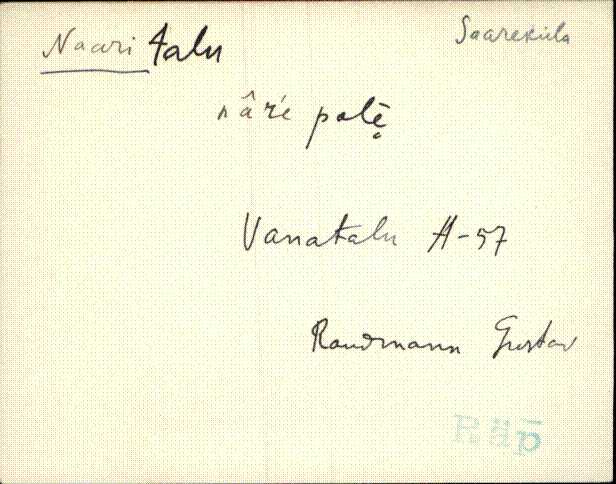 Naari talu Saareküla
nâŕe patȩ̄
Vanatalu A-57
Raudmann Gustav
Räp